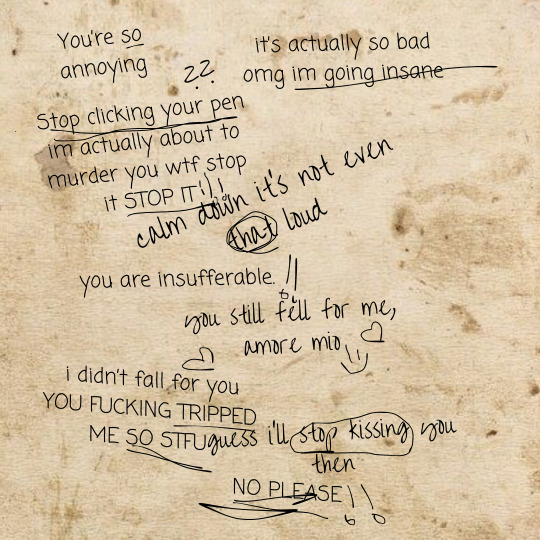 You're so
annoying
??
it's actually so bad
omg im going insane
Stop clicking your pen
im actually about to
murder you wtf stop
it STOP IT!!!
calm down it's not even
that loud
you are insufferable. !!
you still fell for me,
amore mio
i didn't fall for you
YOU FUCKING TRIPPED
ME SO STFU
guess i'll stop kissing you
then
NO PLEASE!!